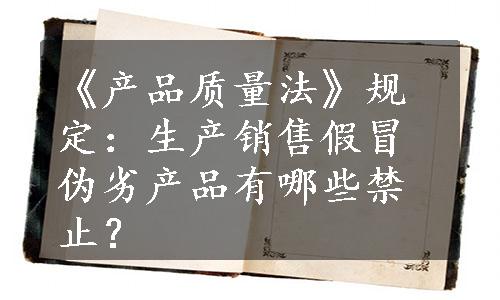 《产品质量法》规
定：生产销售假冒
伪劣产品有哪些禁
止？